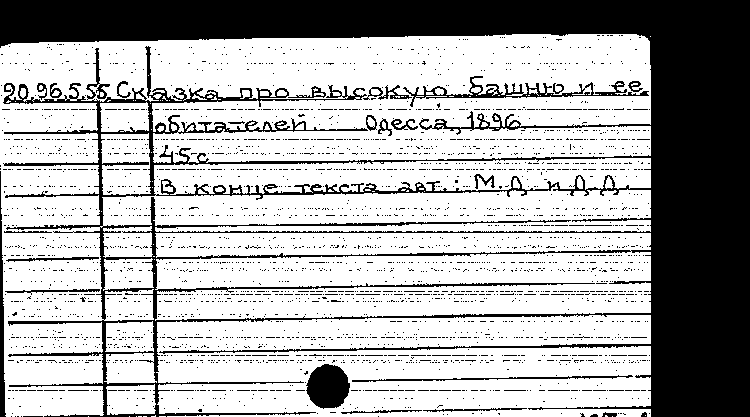 20.96.5.55 Сказка про высокую башню и ее
обитателей. Одесса, 1896
45 с
В конце текста авт.: М.Д. и Д.Д.